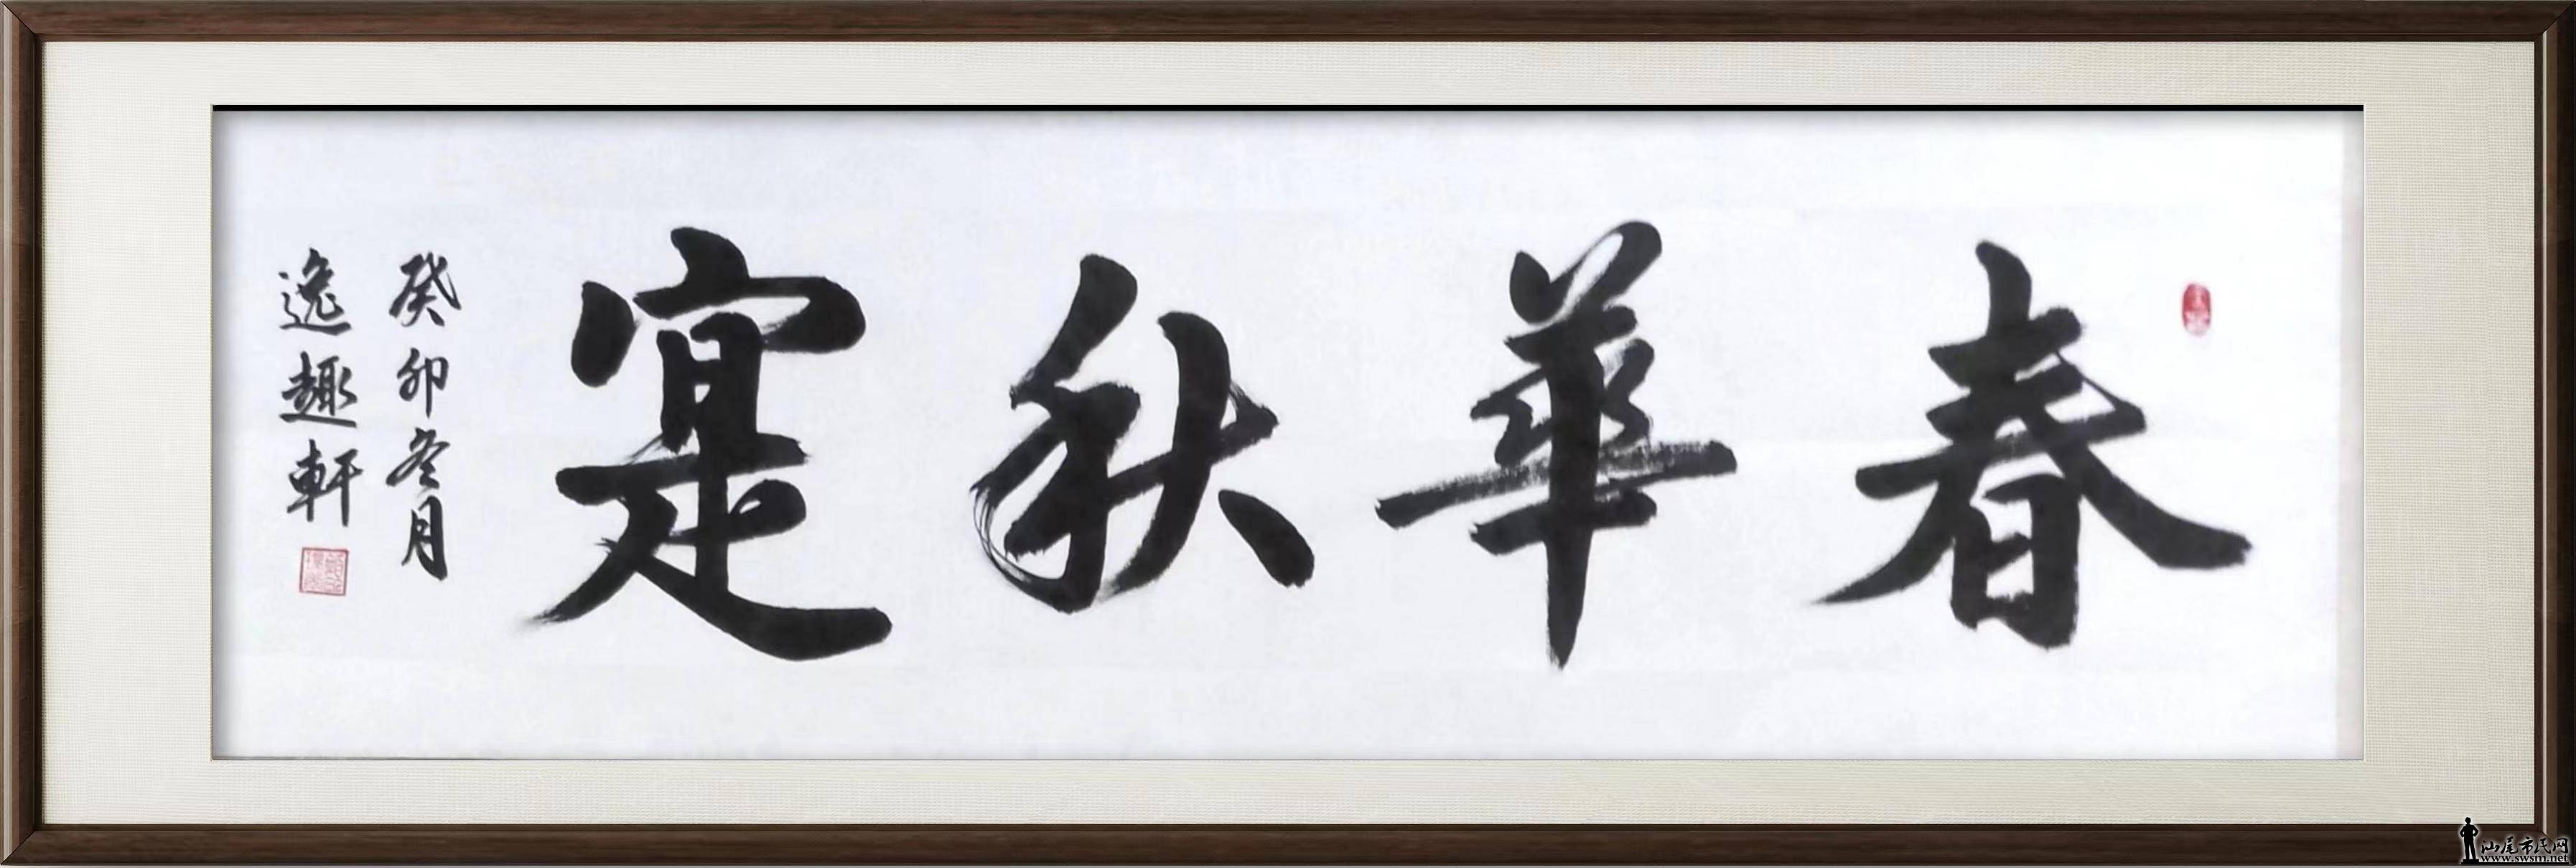 春華秋寔
癸卯冬月
逸趣軒
汕尾市民网
www.swsm.net